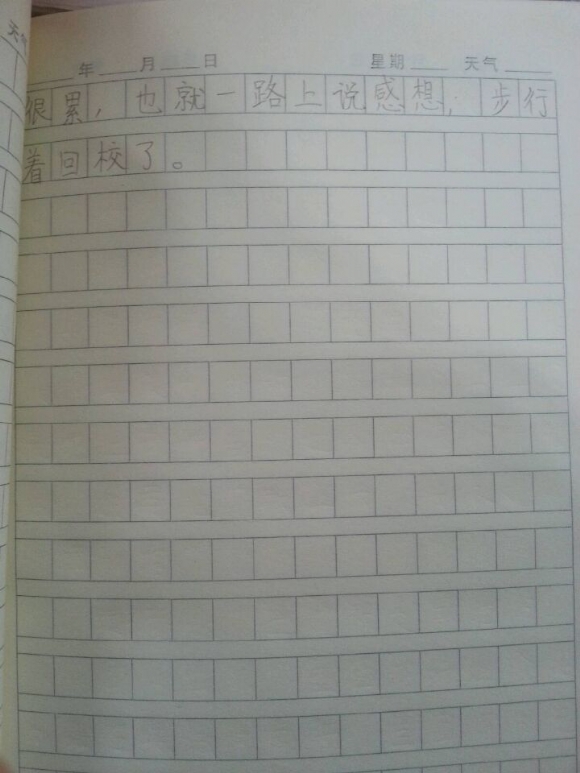 天
年 月 日 星期 天气
很累，也就一路上说感想，步行
着回校了。